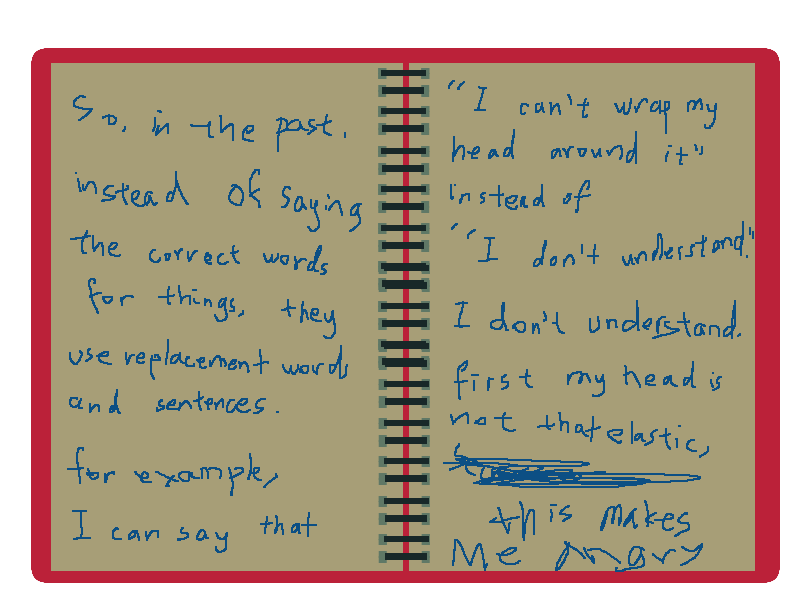 So, in the past.
instead of saying
the correct words
for things, they
use replacement words
and sentences.
for example,
I can say that
"I can't wrap my
head around it"
instead of
"I don't understand."
I don't understand.
first my head is
not that elastic,
this makes
Me Angry